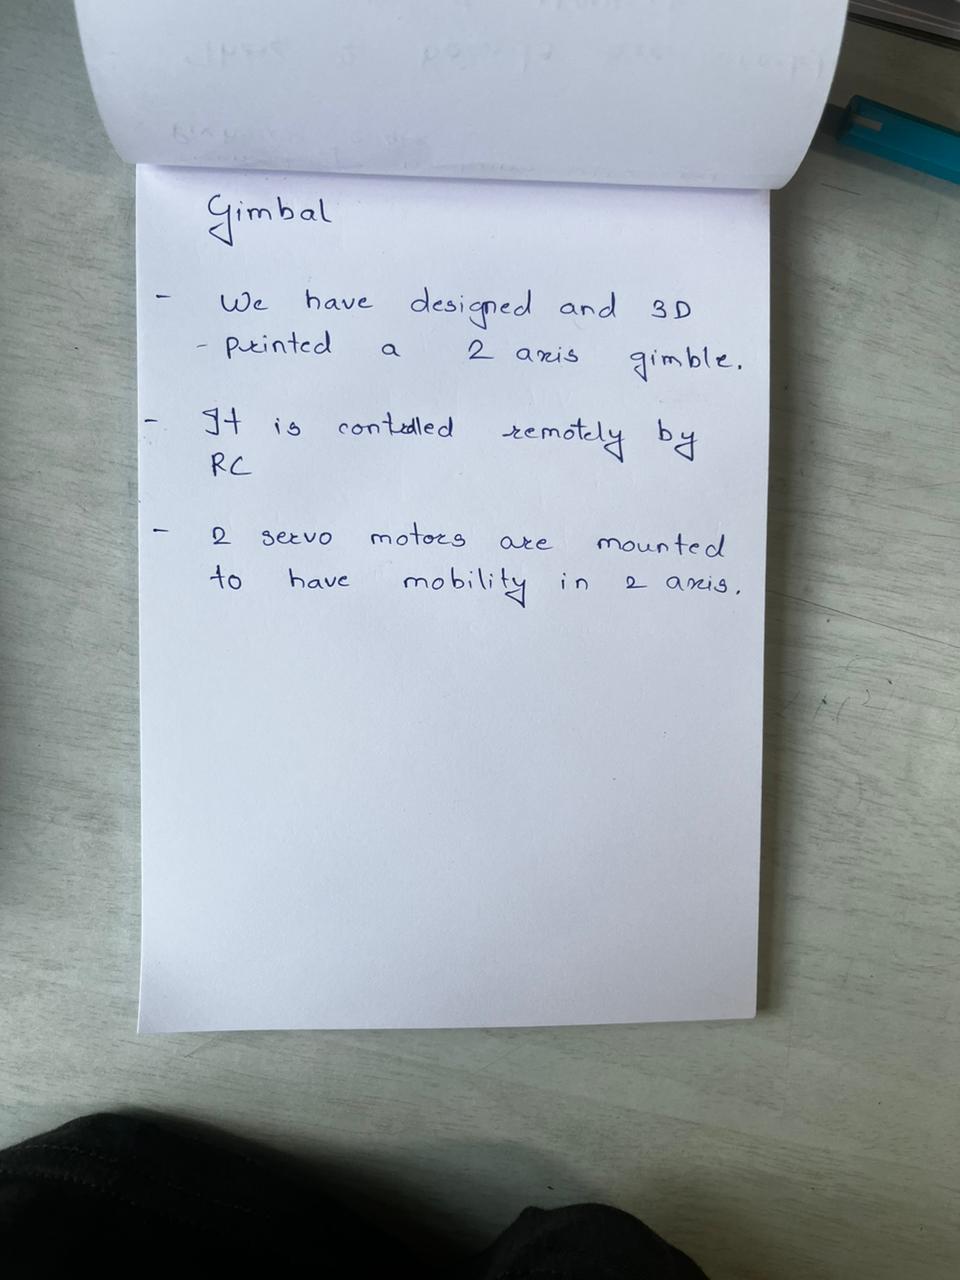 Gimbal
- We have designed and 3D
- printed a 2 axis gimble.
- It is contolled remotely by
RC
- 2 servo motors are mounted
to have mobility in 2 axis.